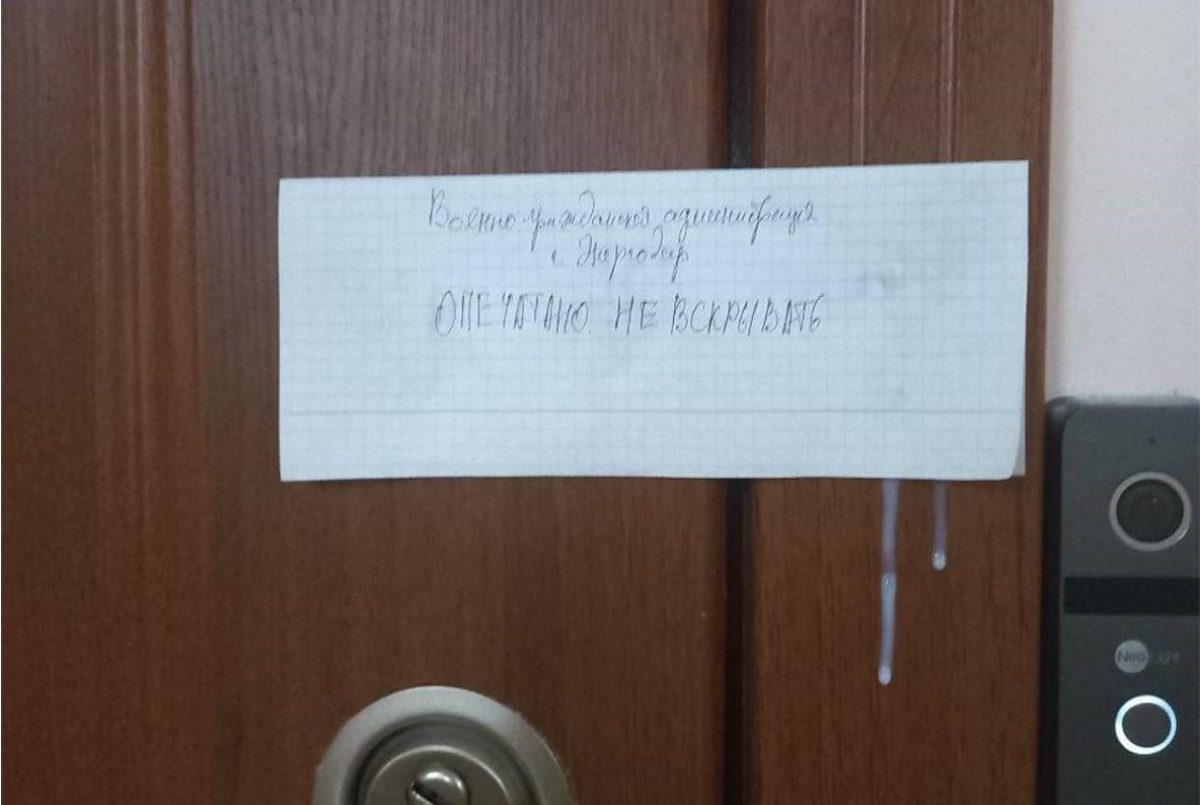 Военно-гражданская администрация
г. Энергодар
ОПЕЧАТАНО. НЕ ВСКРЫВАТЬ
Neo Light